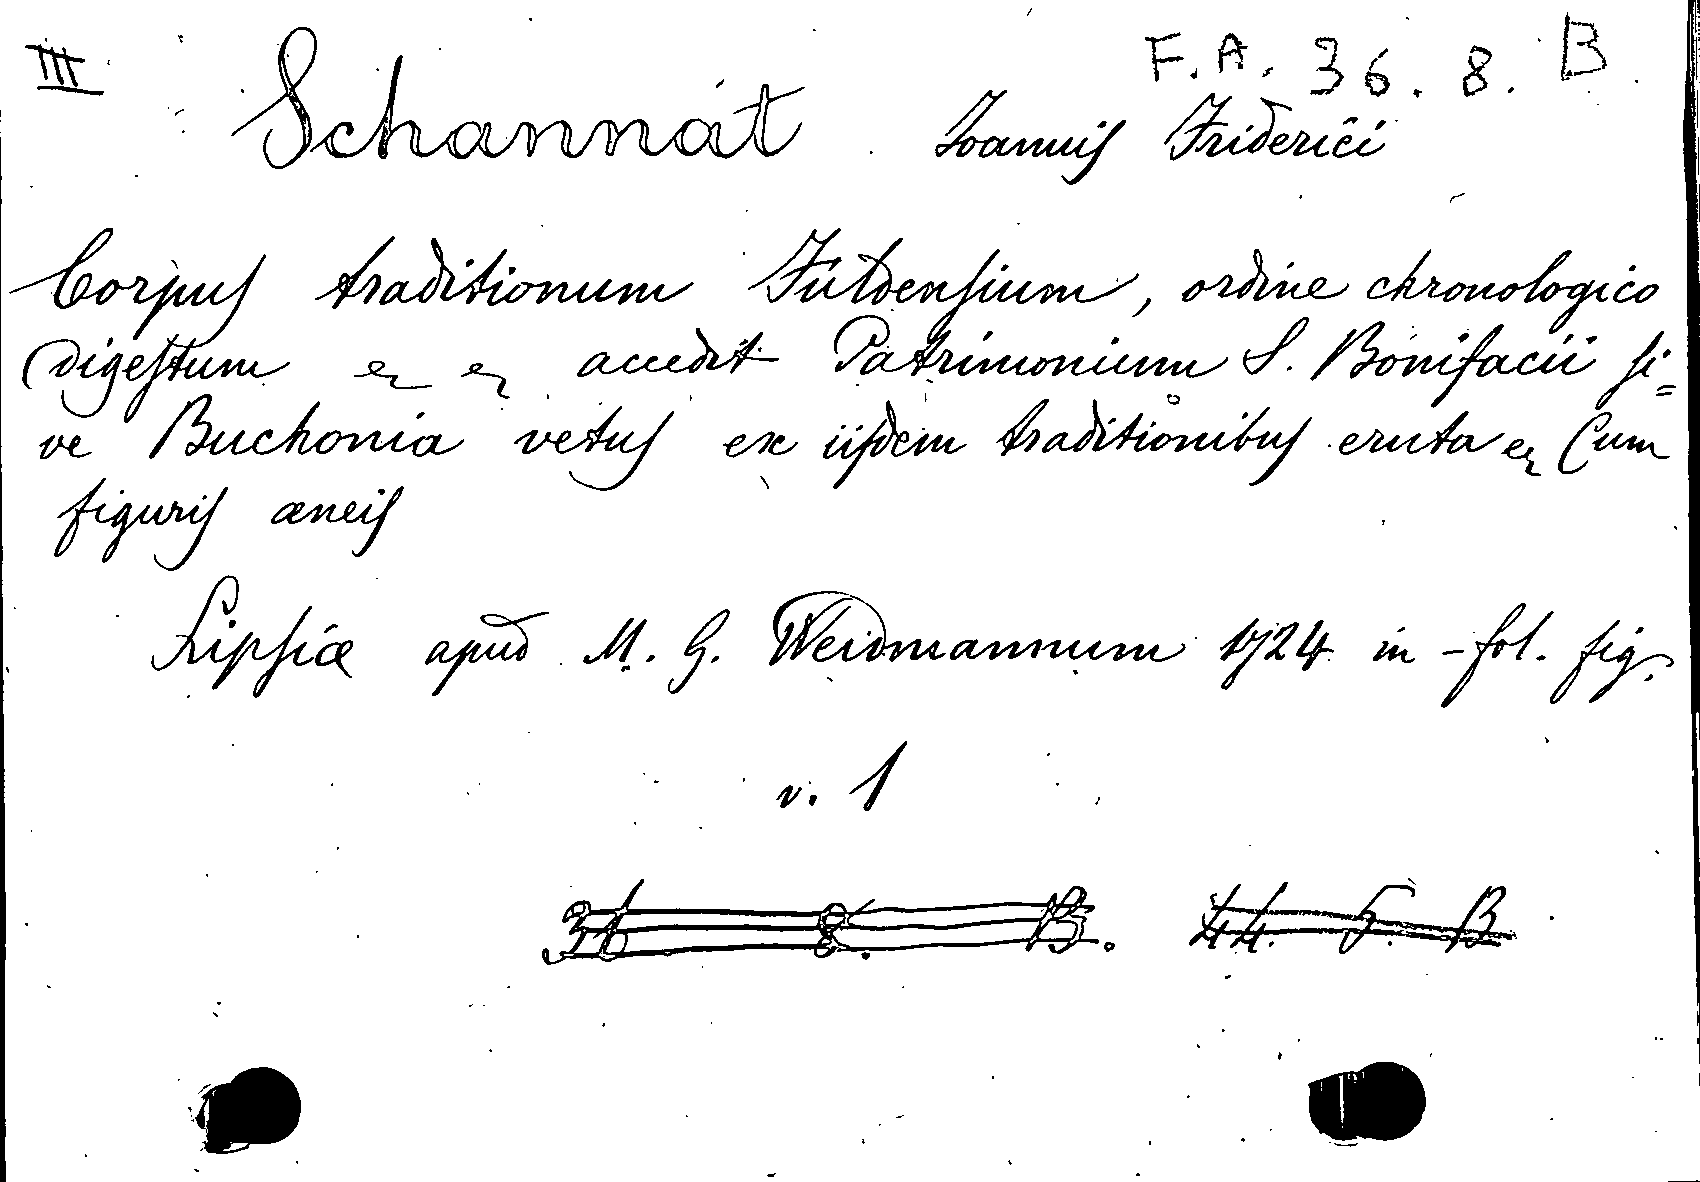 III F.A. 36. 8. B
Schannat Joannis Friderici
Corpus traditionum Fuldensium, ordine chronologico
digestum etc etc accedit Patrimonium S. Bonifacii si=
ve Buchonia vetus ex iisdem traditionibus eruta etc Cum
figuris æneis
Lipsiæ apud M. G. Weidmannum 1724 in-fol. fig.
v. 1
36 8. B. 44. 5. B